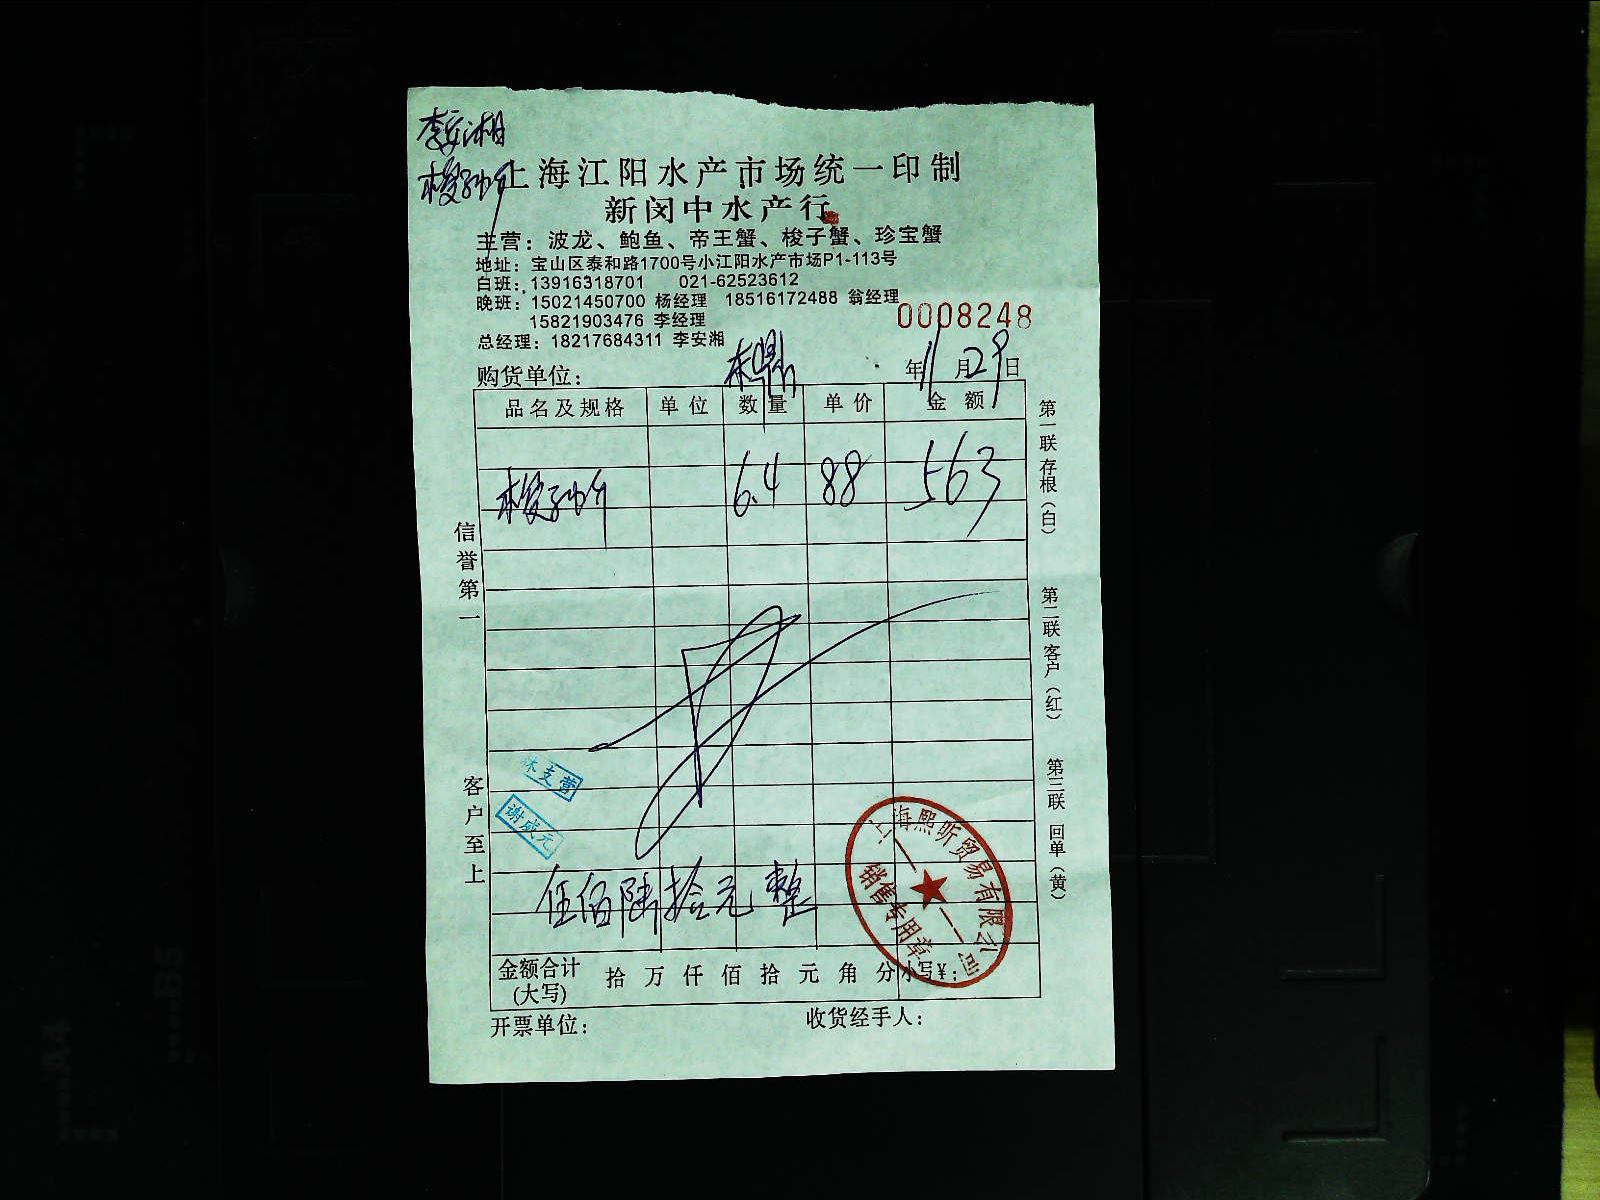 李安湘
梭子介
上海江阳水产市场统一印制
新闵中水产行
主营：波龙、鲍鱼、帝王蟹、梭子蟹、珍宝蟹
地址：宝山区泰和路1700号小江阳水产市场P1-113号
白班：13916318701 021-62523612
晚班：15021450700 杨经理 18516172488 翁经理
15821903476 李经理
0008248
总经理：18217684311 李安湘
购货单位： 年11月29日
品名及规格 单位 数量 单价 金额
梭子介 6.4 88 563
信誉第一
客户至上
第一联 存根（白）
第二联 客户（红）
第三联 回单（黄）
林支营
谢成元
伍佰陆拾元整
上海熙昕贸易有限公司
销售专用章
金额合计(大写) 拾 万 仟 佰 拾 元 角 分 小写¥：
开票单位： 收货经手人：